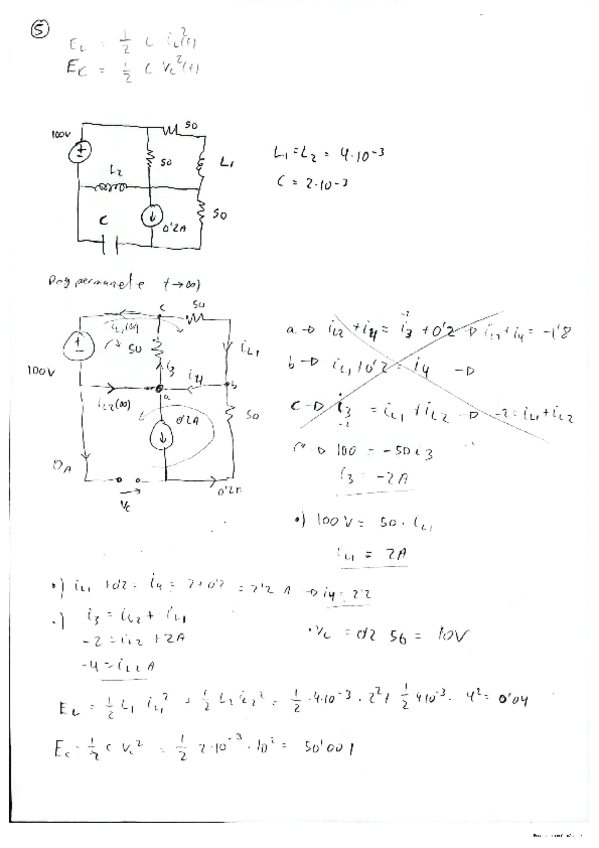 5
E_L = 1/2 L i_L²(t)
E_C = 1/2 C V_C²(t)
100V
50
50
L1
L2
50
C
0'2A
L1 = L2 = 4·10^-3
C = 2·10^-3
t→∞)
c
50
i_L2(∞)
50
i3
i_L1
100V
i4
b
i_L2(∞)
a
0'2A
50
0A
Vc
0'2A
a → i_L2 + i4 = i3 + 0'2 → i_L2 + i4 = -1'8
-2
b → i_L1 + 0'2 = i4 →
c → i3 = i_L1 + i_L2 → -2 = i_L1 + i_L2
-2
→ 100 = -50 i3
i3 = -2A
•) 100V = 50 · i_L1
i_L1 = 2A
•) i_L1 + 0'2 = i4 = 2 + 0'2 = 2'2 A → i4 = 2'2
•) i3 = i_L2 + i_L1
-2 = i_L2 + 2A
-4 = i_L2 A
• Vc = 0'2 50 = 10V
E_L = 1/2 L1 i_L1² + 1/2 L2 i_L2² = 1/2 · 4·10^-3 · 2² + 1/2 4·10^-3 · 4² = 0'04
E_C = 1/2 C V_C² = 1/2 2·10^-3 · 10² =